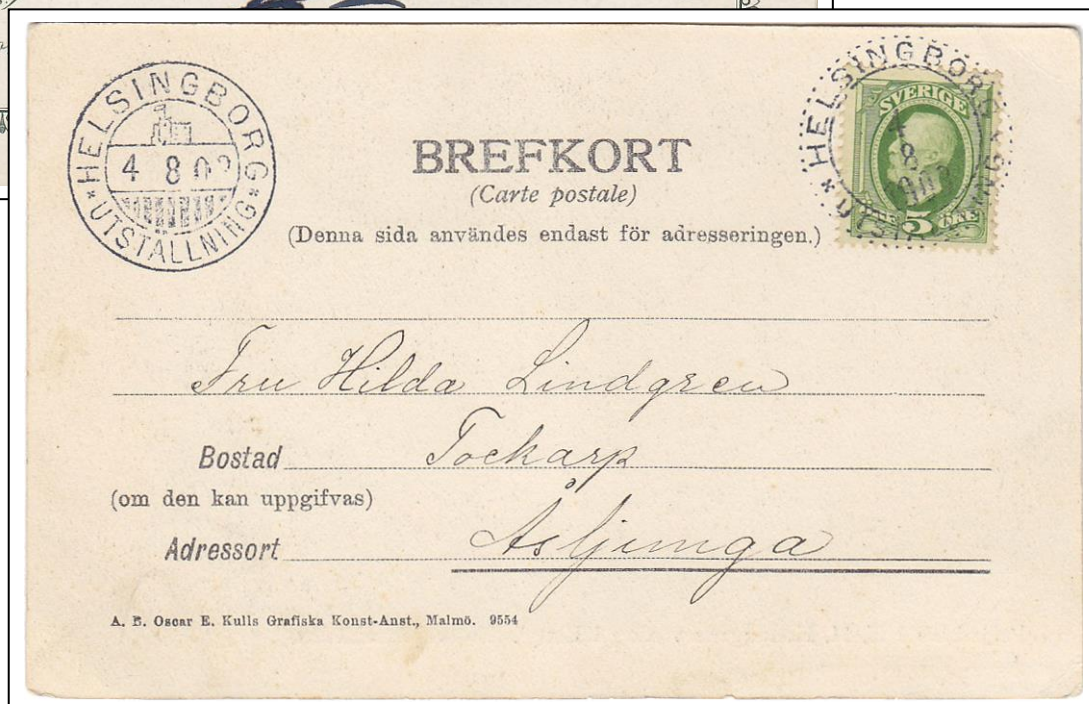 HELSINGBORG
4 8 03
UTSTÄLLNING
BREFKORT
(Carte postale)
(Denna sida användes endast för adresseringen.)
HELSINGBORG
4
8
SVERIGE
5 ÖRE
Fru Hilda Lindgren
Bostad Tockarp
(om den kan uppgifvas)
Adressort Åsljunga
A. B. Oscar E. Kulls Grafiska Konst-Anst., Malmö. 9554